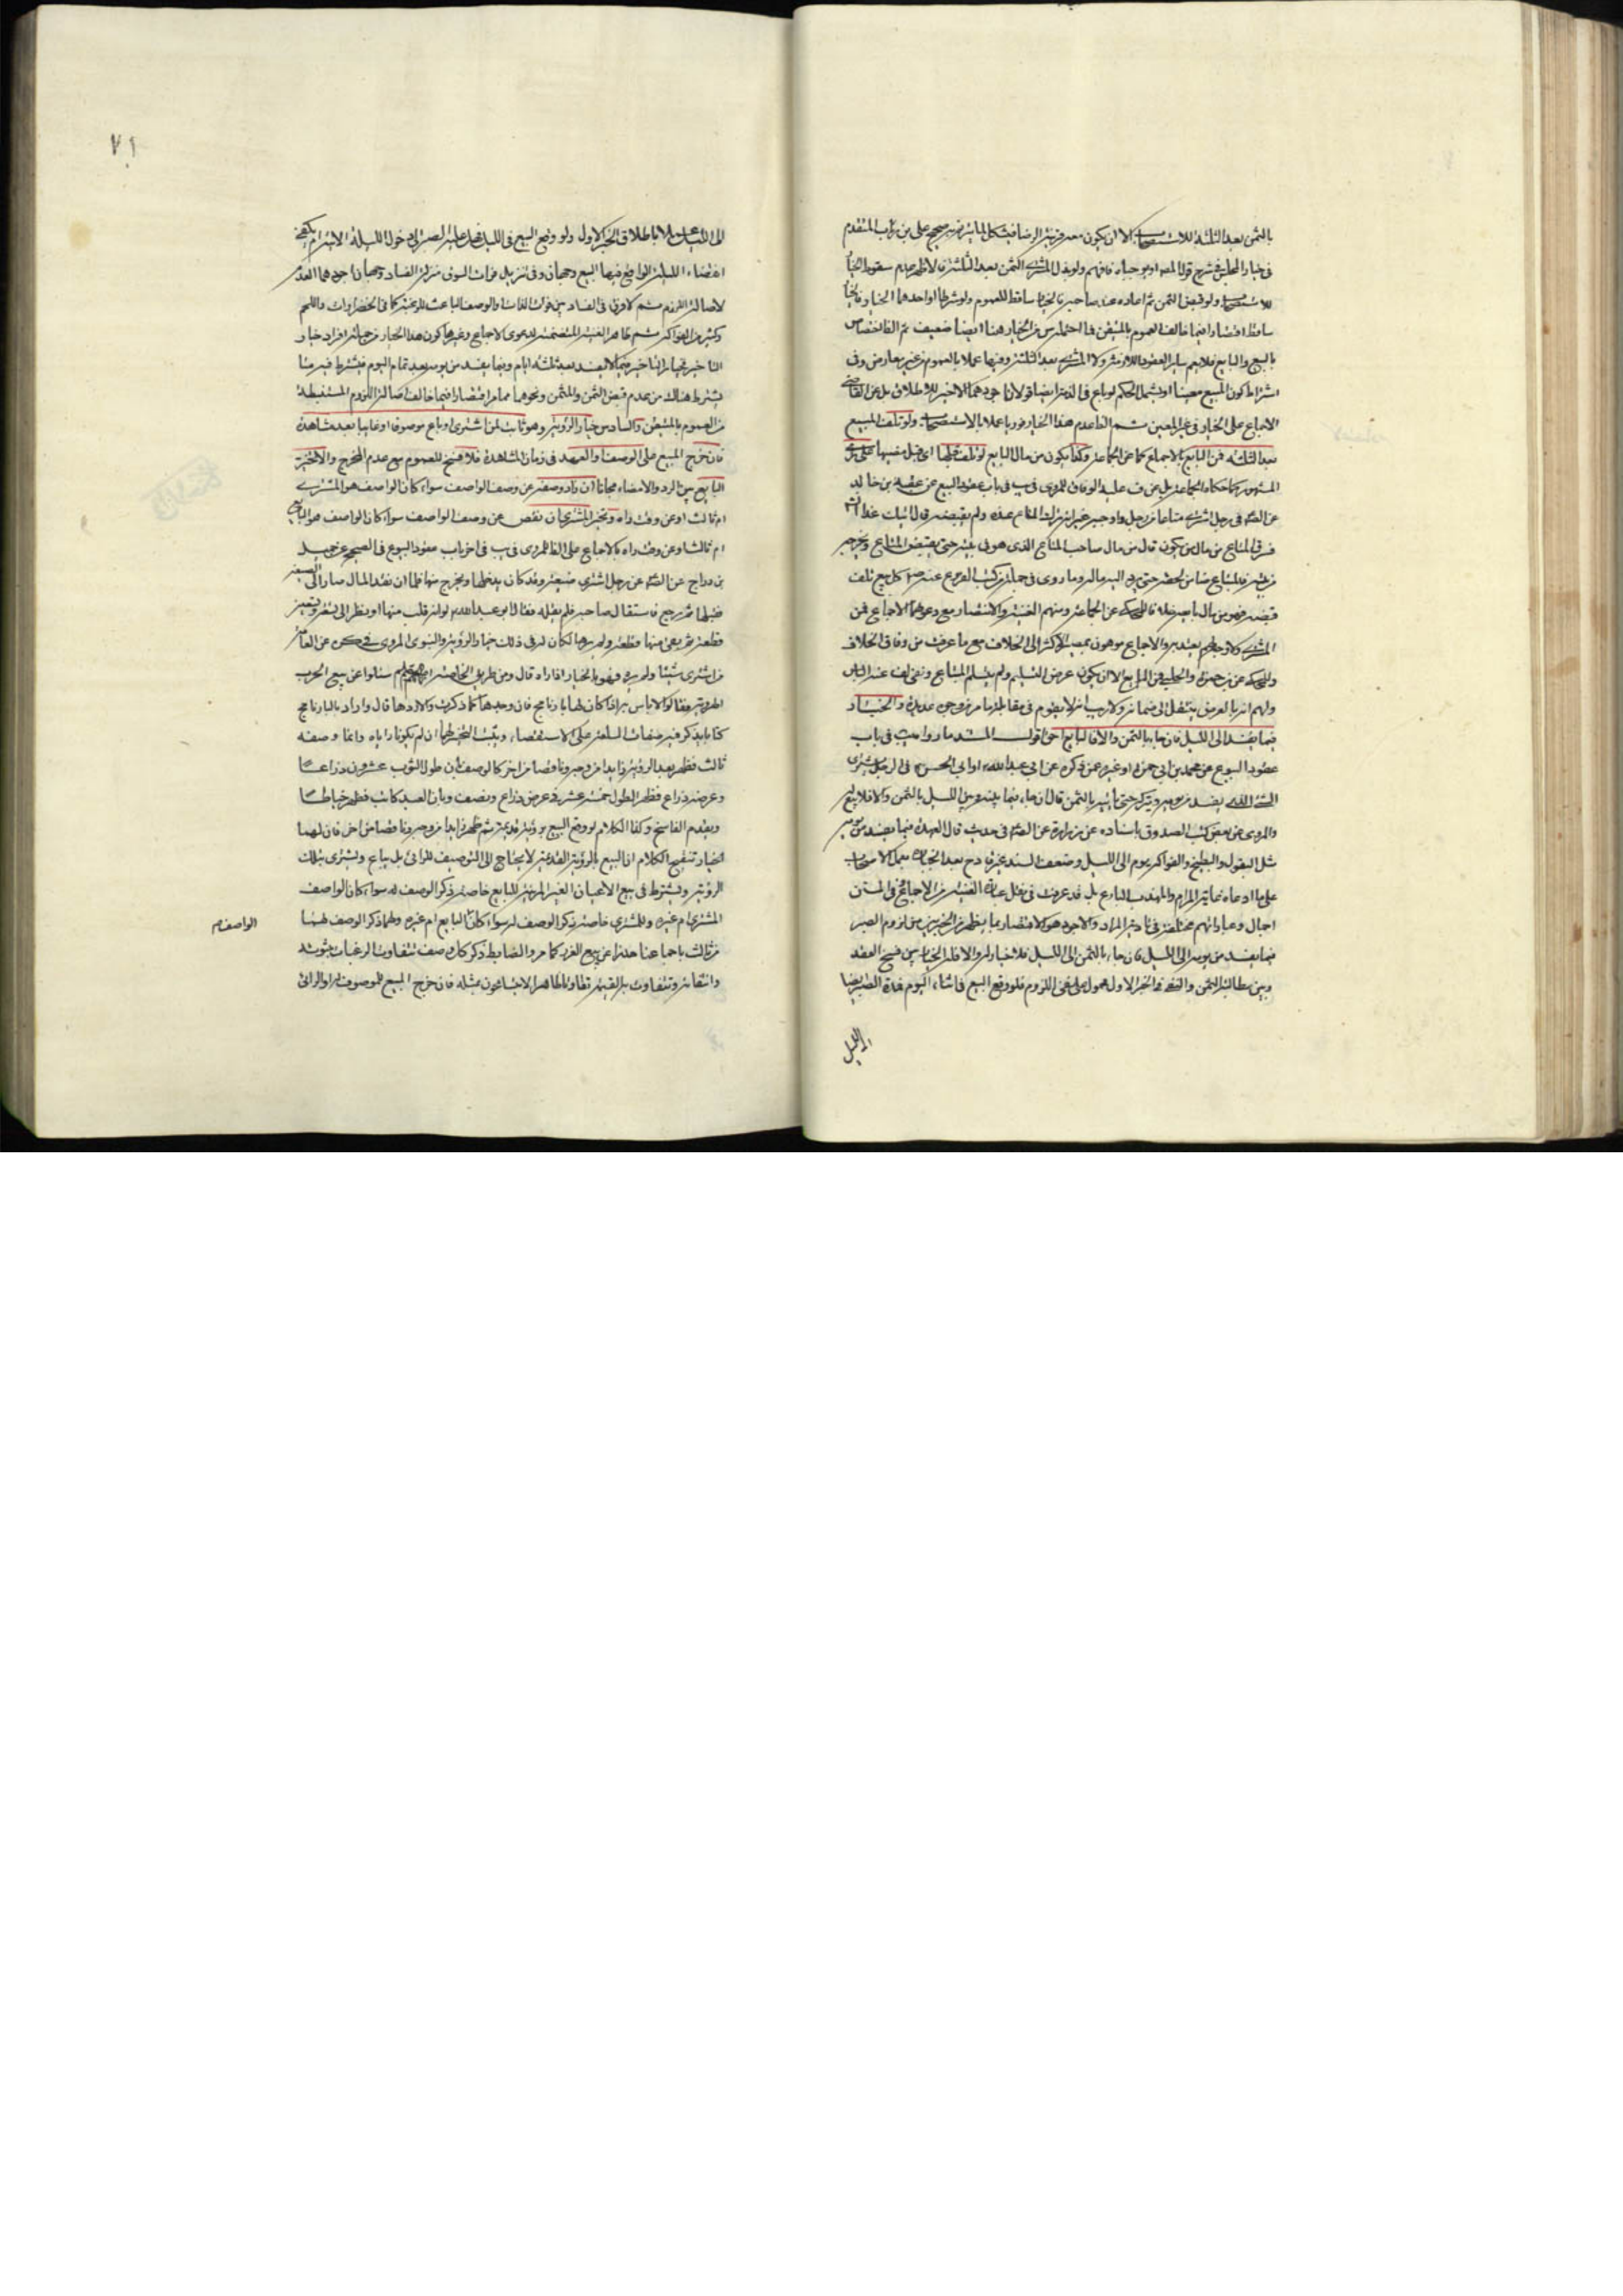 بالثمن بعد الثلثة للاستصحاب الا ان يكون معه قرينة الرضا فيشكل
في خيار المجلس في شرح قول المصنف فافهم ولو بذل المشتري الثمن بعد الثلثة فالاظهر عدم سقوط الخيار
للاستصحاب ولو قبض الثمن ثم اعاده ساقط للعموم ولو شرطا او احدهما الخيار فالخيار
ساقط اقتصارا فيما خالف العموم بالمتيقن هنا ايضا ضعيف ثم الظ اختصاص
بالبيع والبايع فلا يعم ساير العقود اللازمة ولا المشتري بعد الثلثة وفيها عملا بالعموم من غير معارض وفي
اشتراط كون المبيع معينا او يشمل الحكم لو باع في الذمة ايضا قولان اجودهما الاخير للاطلاق بل عن
الاجماع على الخيار في غير المعين ثم الظ عدم هذا الخيار فوريا عملا بالاستصحاب ولو تلف المبيع
بعد الثلثة فمن البايع بالاجماع كما عن الجماعة وكذا يكون من مال البايع لو تلف قبلها اي قبل مضيها على
المشهور كما حكاه الجماعة بل عن ف عليه الوفاق للمروي في يب في باب عقود البيع عن عقبة بن خالد
عن الصه في رجل اشترى متاعا من رجل واوجبه غير انه ترك المتاع عنده ولم يقبضه قال اتيك غدا انشاء
فسرق المتاع من مال من يكون قال من مال صاحب المتاع الذي هو في بيته حتى يقبض المتاع ويخرجه
من بيته فالمبتاع ضامن لحقه حتى يرد اليه ماله وما روي في جملة من كتب الفروع عنه ص كل مبيع تلف
قبل قبضه فهو من مال بايعه خلافا للمحكي عن الجماعة ومنهم الغنية والانتصار مع دعواهما الاجماع فمن
المشتري والاجماع موهون بمصير الاكثر الى الخلاف مع ما عرفت من وفاق الخلاف
والمحكي عن بن حمزة والحلبي فمن البايع الا ان يكون عرض التسليم ولم يتسلم المبتاع ونفي لف عنه الباس
ولهم انه بالعرض ينتقل الى ضمانه ولا ريب انه لا يقوم في مقابلة ما مر من وجوه عديدة والخيار
فيما يفسد الى الليل فان جاء بالثمن والا فالبايع احق اقول المستند ما رواه يب في باب
عقود البيوع عن محمد بن ابي حمزة او غيره عمن ذكره عن ابي عبد الله او ابي الحسن في الرجل يشتري
الشئ الذي يفسد من يومه ويتركه حتى يأتيه بالثمن قال ان جاء فيما بينه وبين الليل بالثمن والا فلا بيع له
والمروي عن بعض كتب الصدوق باسناده عن بن زرارة عن الصه في حديث قال العهدة فيما يفسد من يومه
مثل البقول والبطيخ والفواكه يوم الى الليل وضعف السند غير قادح بعد انجباره بعمل الاصحاب
على ما ادعاه غاية المرام والمهذب البارع بل قد عرفت في نقل عبارة الغنية من الاجماع وفي المتن
اجمال وعباراتهم مختلفة في تادية المراد والاجود هو الاقتصار بما يظهر من الخبرين من لزوم الصبر
فيما يفسد من يومه الى الليل فان جاء بالثمن الى الليل فلا خيار له والا فله الخيار بين فسخ العقد
وبين مطالبة الثمن والنفي في الخبر الاول محمول على نفي اللزوم فلو وقع البيع في اثناء اليوم فمدة الصبر ايضا
الى الليل
٧١
الى الليل عملا باطلاق الخبر الاول ولو وقع البيع في الليل فهل عليه الصبر الى دخول الليلة الاتية ام يكفي
انقضاء الليلة الواقع فيها البيع وجهان وفي تنزيل فوات السوق منزلة الفساد وجهان اجودهما العدم
لاصالة اللزوم ثم لا فرق في الفساد بين فوات الذات او الوصف الباعث للرغبة كما في الخضراوات واللحم
وكثير من الفواكه ثم ظاهر الغنية المتضمنة لدعوى الاجماع وغيرها كون هذا الخيار من جملة افراد خيار
التاخير فخيار التاخير فيما لا يفسد بعد ثلثة ايام وفيما يفسد من يومه بعد تمام اليوم فيشترط فيه ما
يشترط هناك من عدم قبض الثمن والمثمن ونحوهما مما مر اقتصارا فيما خالف اصالة اللزوم المستنبطة
من العموم بالمتيقن والسادس خيار الرؤية وهو ثابت لمن اشترى او باع موصوفا او غايبا بعد مشاهدة
فان خرج المبيع على الوصف او العهد في زمان المشاهدة فلا فسخ للعموم مع عدم المخرج والا تخير
البايع بين الرد والامضاء مجانا ان زاد وصفه عن وصف الواصف سواء كان الواصف هو المشتري
ام ثالث او عن وقت راه ويخير المشتري ان نقص عن وصف الواصف سواء كان الواصف هو البايع
ام ثالثا وعن وقت راه بالاجماع على الظ للمروي في يب في اخر باب عقود البيوع في الصحيح عن جميل
بن دراج عن الصه عن رجل اشترى ضيعة وقد كان يدخلها ويخرج منها فلما ان نقد المال صار الى الضيعة
فقلبها ثم رجع فاستقال صاحبه فلم يقله فقال ابو عبد الله لو انه قلب منها او نظر الى تسعة وتسعين
قطعة ثم بقي منها قطعة ولم يرها لكان له في ذلك خيار الرؤية والنبوي المروي في كره عن العامة
من اشترى شيئا ولم يره فهو بالخيار اذا راه قال ومن طريق الخاصة انهم عليهم السلام سئلوا عن بيع الجرب
الهروية فقالوا لا باس به اذا كان لها بارنامج فان وجدها كما ذكرت والا ردها قال واراد بالبارنامج
كتابا يذكر فيه صفات السلعة على الاستقصاء ويثبت التخيير لهما ان لم يكونا راياه وانما وصفه
ثالث فظهر بعد الرؤية زايدا من وجه وناقصا من اخر كالوصف بان طول الثوب عشرون ذراعا
وعرضه ذراع فظهر الطول خمسة عشر في عرض ذراع ونصف وبان العبد كاتب فظهر خياطا
ويقدم الفاسخ وكذا الكلام لو وقع البيع برؤية قديمة ثم ظهر زايدا من وجه وناقصا من اخر فان لهما
الخيار تنقيح الكلام ان البيع بالرؤية القديمة لا يحتاج الى التوصيف للرائي بل يباع ويشترى بتلك
الرؤية ويشترط في بيع الاعيان الغير المرئية للبايع خاصة ذكر الوصف له سواء كان الواصف
المشتري ام غيره وللمشتري خاصة ذكر الوصف له سواء كان البايع ام غيره ولهما ذكر الوصف لهما
الواصف م
من ثالث باجماعنا حذرا عن بيع الغرر كما مر والضابط ذكر كل وصف تتفاوت الرغبات بثبوته
وانتفائه وتتفاوت به القيمة تفاوتا ظاهرا لا يتسامحون بمثله فان خرج المبيع للموصوف له او الرائي